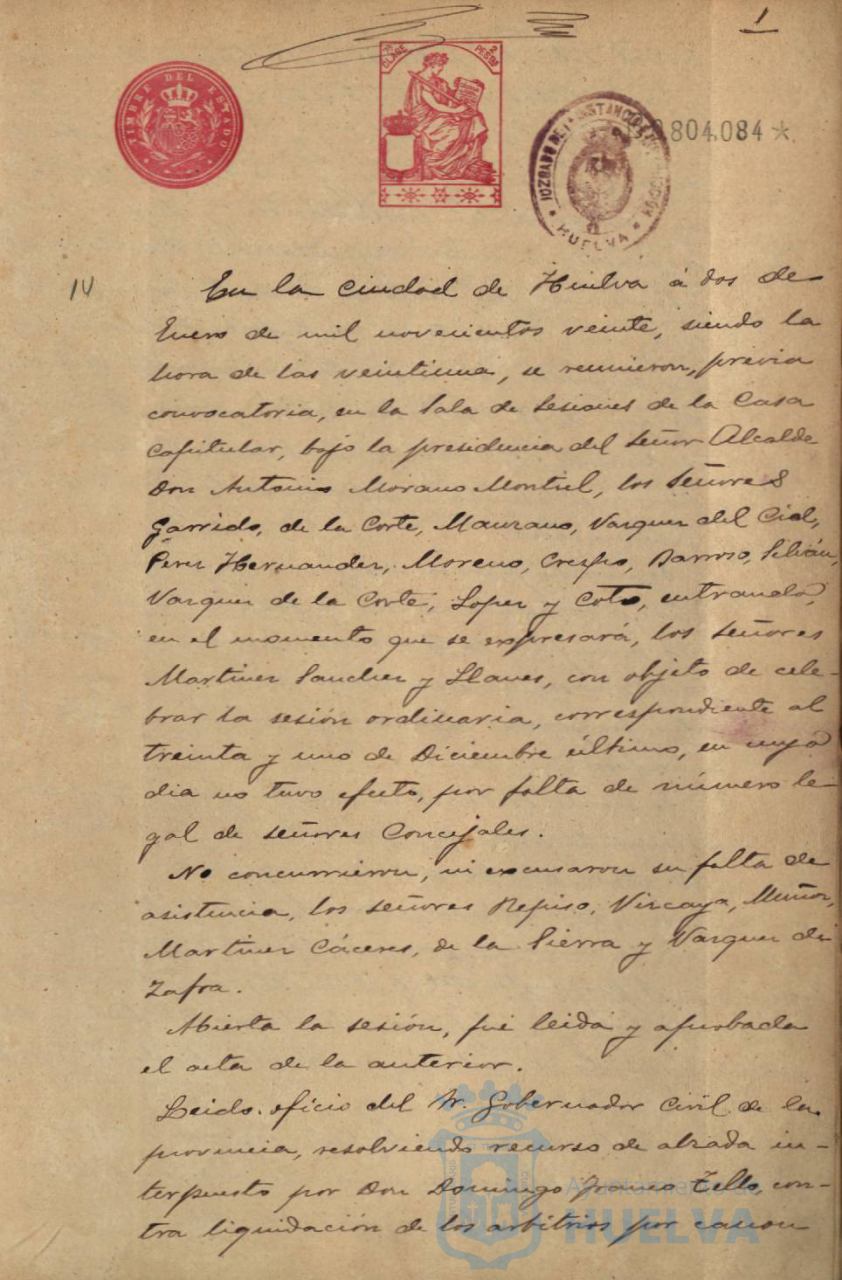 1
TIMBRE DEL ESTADO
CLASE
2 PESETAS
JUZGADO DE 1ª INSTANCIA
HUELVA
804,084 *
14
En la ciudad de Huelva á dos de
Enero de mil novecientos veinte, siendo la
hora de las veintiuna, se reunieron, previa
convocatoria, en la Sala de Sesiones de la Casa
Capitular, bajo la presidencia del Señor Alcalde
Don Antonio Morano Montiel, los Señores
Garrido, de la Corte, Manzano, Vazquez del Cid,
Perez Hernandez, Moreno, Crespo, Barroso, Silván,
Vazquez de la Corte, Lopez y Coto, entrando,
en el momento que se expresará, los señores
Martinez Sanchez y Llanes, con objeto de cele-
brar la sesión ordinaria, correspondiente al
treinta y uno de Diciembre último, en cuyo
dia no tuvo efecto, por falta de número le-
gal de señores Concejales.
No concurrieron, ni excusaron su falta de
asistencia, los señores Repiso, Vizcaya, Muñoz,
Martinez Cáceres, de la Sierra y Vazquez de
Zafra.
Abierta la sesión, fué leida y aprobada
el acta de la anterior.
Leido oficio del Sr. Gobernador Civil de la
provincia, resolviendo recurso de alzada in-
terpuesto por Don Domingo Franco Tello, con-
tra liquidación de los arbitrios por canon
Ayuntamiento de
HUELVA